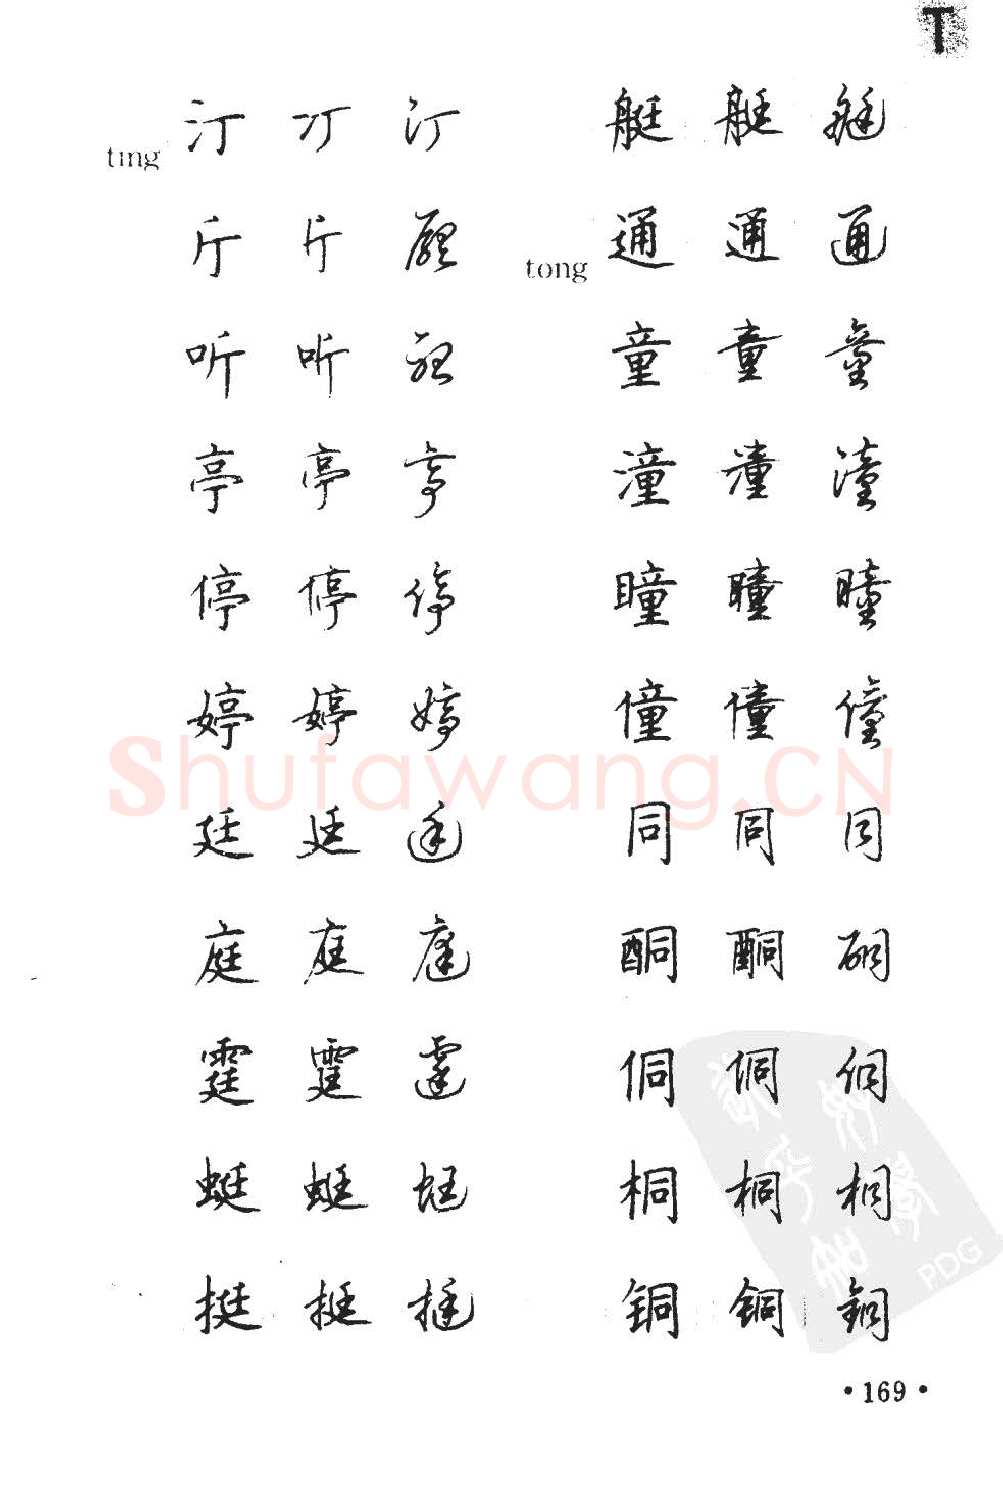 T
ting
汀 汀 汀
厅 厅 廳
听 听 聽
亭 亭 亭
停 停 停
婷 婷 婷
廷 廷 廷
庭 庭 庭
霆 霆 霆
蜓 蜓 蜓
挺 挺 挺
艇 艇 艇
tong
通 通 通
童 童 童
潼 潼 潼
瞳 瞳 瞳
僮 僮 僮
同 同 同
酮 酮 酮
侗 侗 侗
桐 桐 桐
铜 铜 銅
Shufawang.CN
PDG
·169·